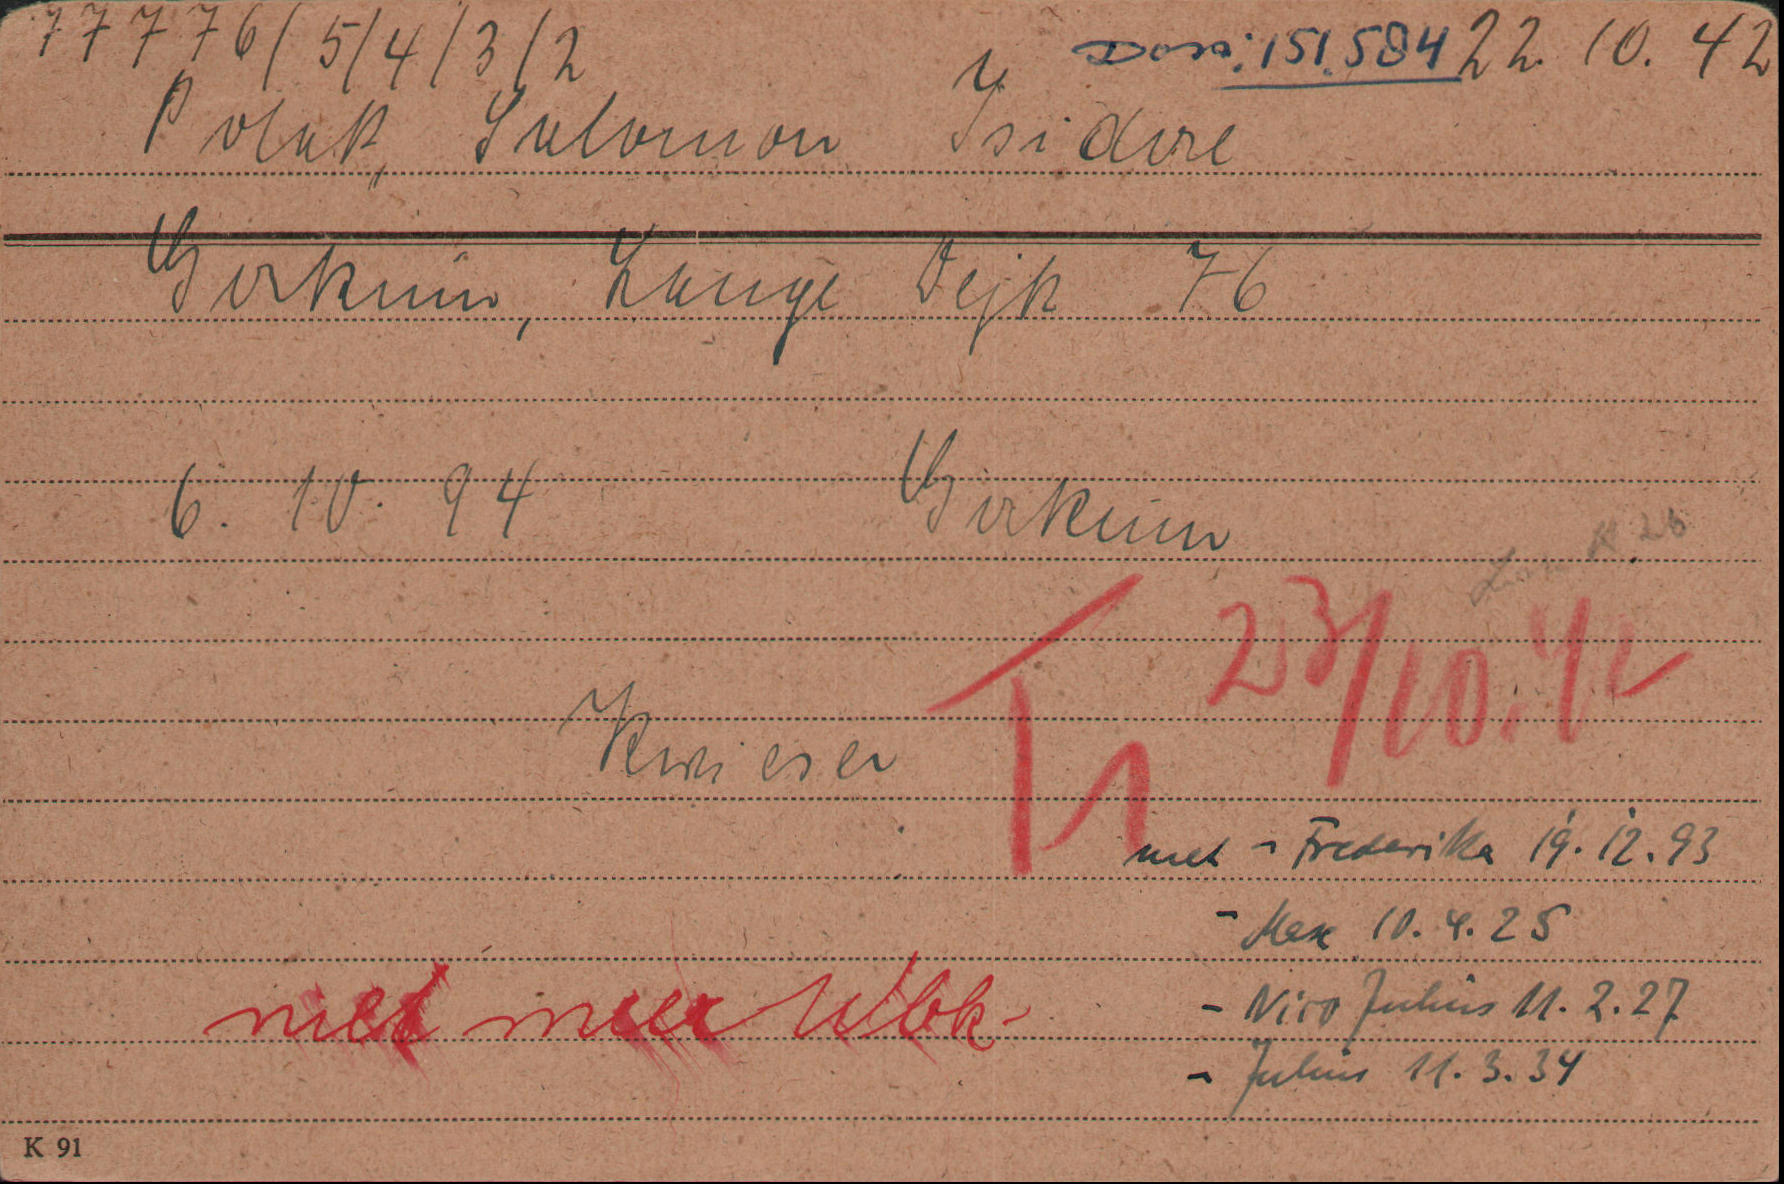 77776/5/4/3/2 Doss: 151.584 22. 10. 42
Polak, Salomon Isidore
Borkum, Lange Dejk 76
6. 10. 94 Borkum
K 26
23/10.42
met - Frederika 19.12.93
- Max 10.4.25
- Nico Julius 11.2.27
niet meer Wbk-
- Julius 11.3.34
K 91